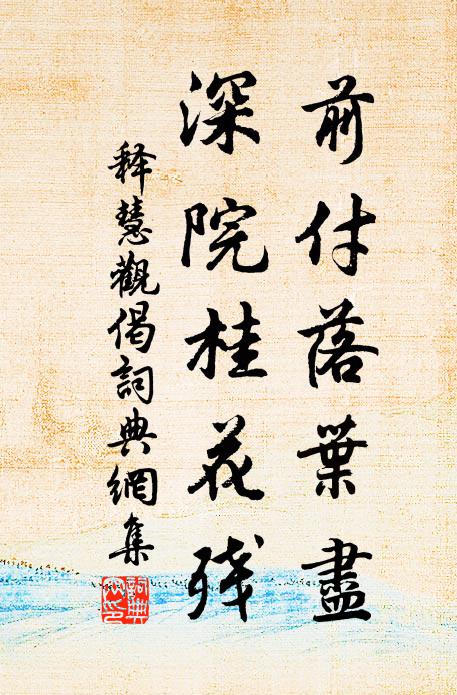 前付落葉盡
深院桂花殘
释慧觀偈詞典網集